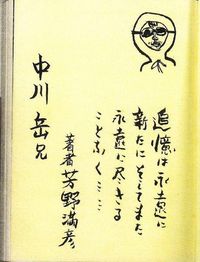 追憶は永遠に
新たにそしてまた
永遠に尽きる
ことなく
著者 芳野満彦
中川 岳兄